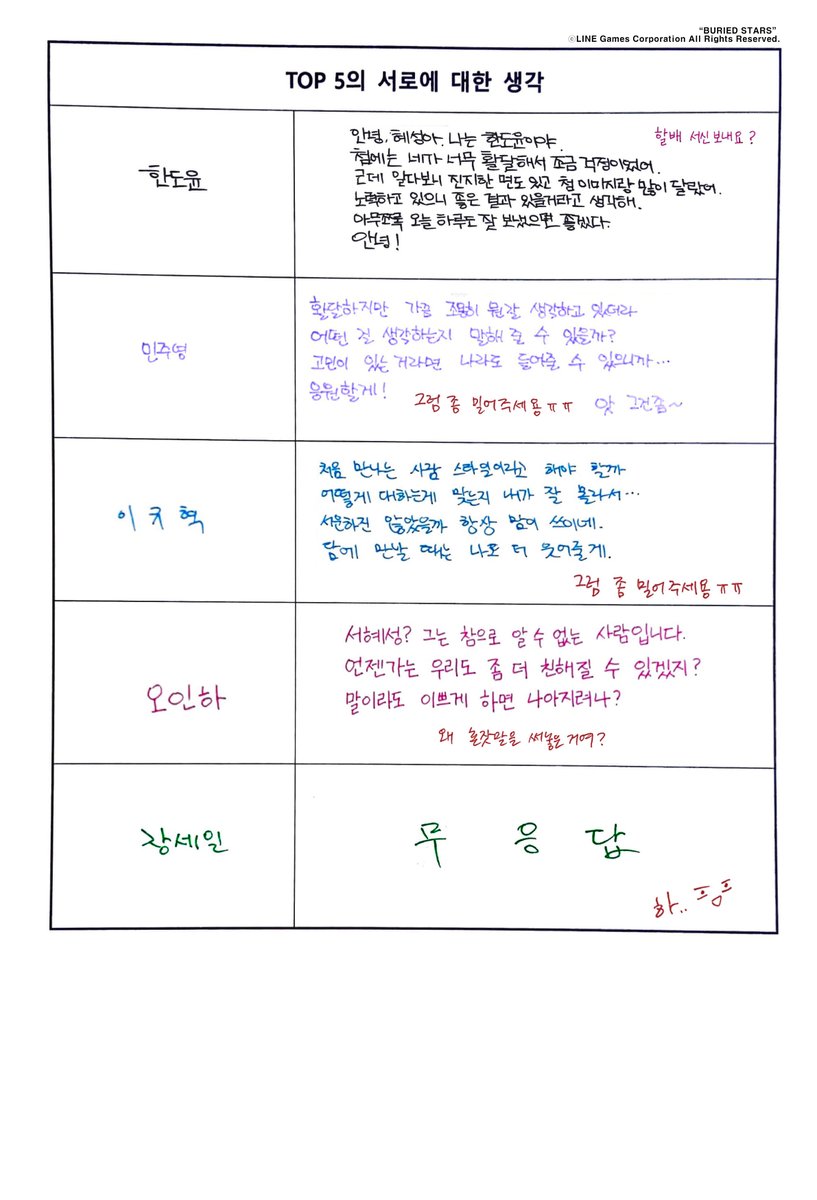 "BURIED STARS"
©LINE Games Corporation All Rights Reserved.
TOP 5의 서로에 대한 생각
한도윤
안녕, 혜성아. 나는 한도윤이야.
할배 서신보내요?
첨에는 네가 너무 활달해서 조금 걱정이었어.
근데 알다보니 진지한 면도 있고 첨 이미지랑 많이 달랐어.
노력하고 있으니 좋은 결과 있을거라고 생각해.
아무쪼록 오늘 하루도 잘 보냈으면 좋겠다.
안녕!
민주영
활달하지만 가끔 조용히 뭔갈 생각하고 있더라
어떤 걸 생각하는지 말해 줄 수 있을까?
고민이 있는 거라면 나라도 들어줄 수 있으니까...
응원할게!
그럼 좀 밀어주세용ㅠㅠ
앗 그건좀~
이규혁
처음 만나는 사람 스타일이라고 해야 할까
어떻게 대하는게 맞는지 내가 잘 몰라서...
서운하진 않았을까 항상 맘이 쓰이네.
담에 만날 때는 나도 더 웃어줄게.
그럼 좀 밀어주세용ㅠㅠ
오인하
서혜성? 그는 참으로 알 수 없는 사람입니다.
언젠가는 우리도 좀 더 친해질 수 있겠지?
말이라도 이쁘게 하면 나아지려나?
왜 혼잣말을 써놓은거여?
장세일
무 응 답
하..